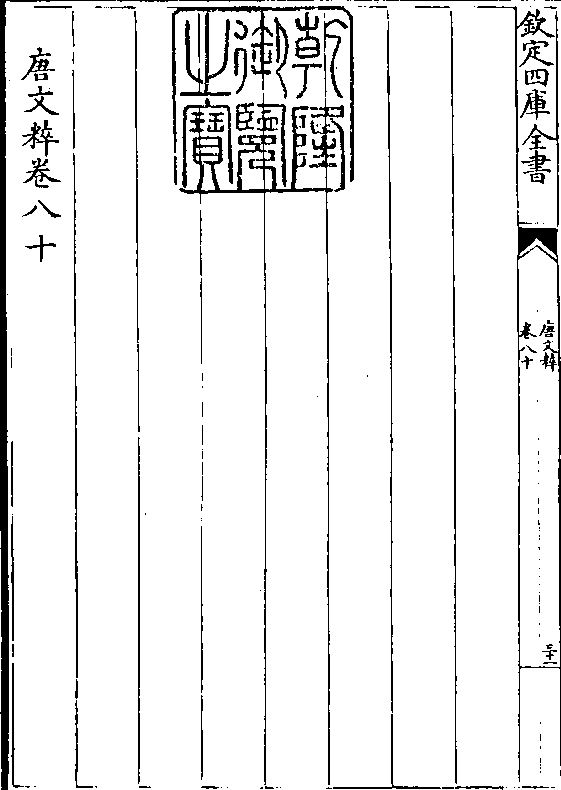 欽定四庫全書
唐文粹
卷八十
三十一
乾隆
御覽
之寶
唐文粹卷八十